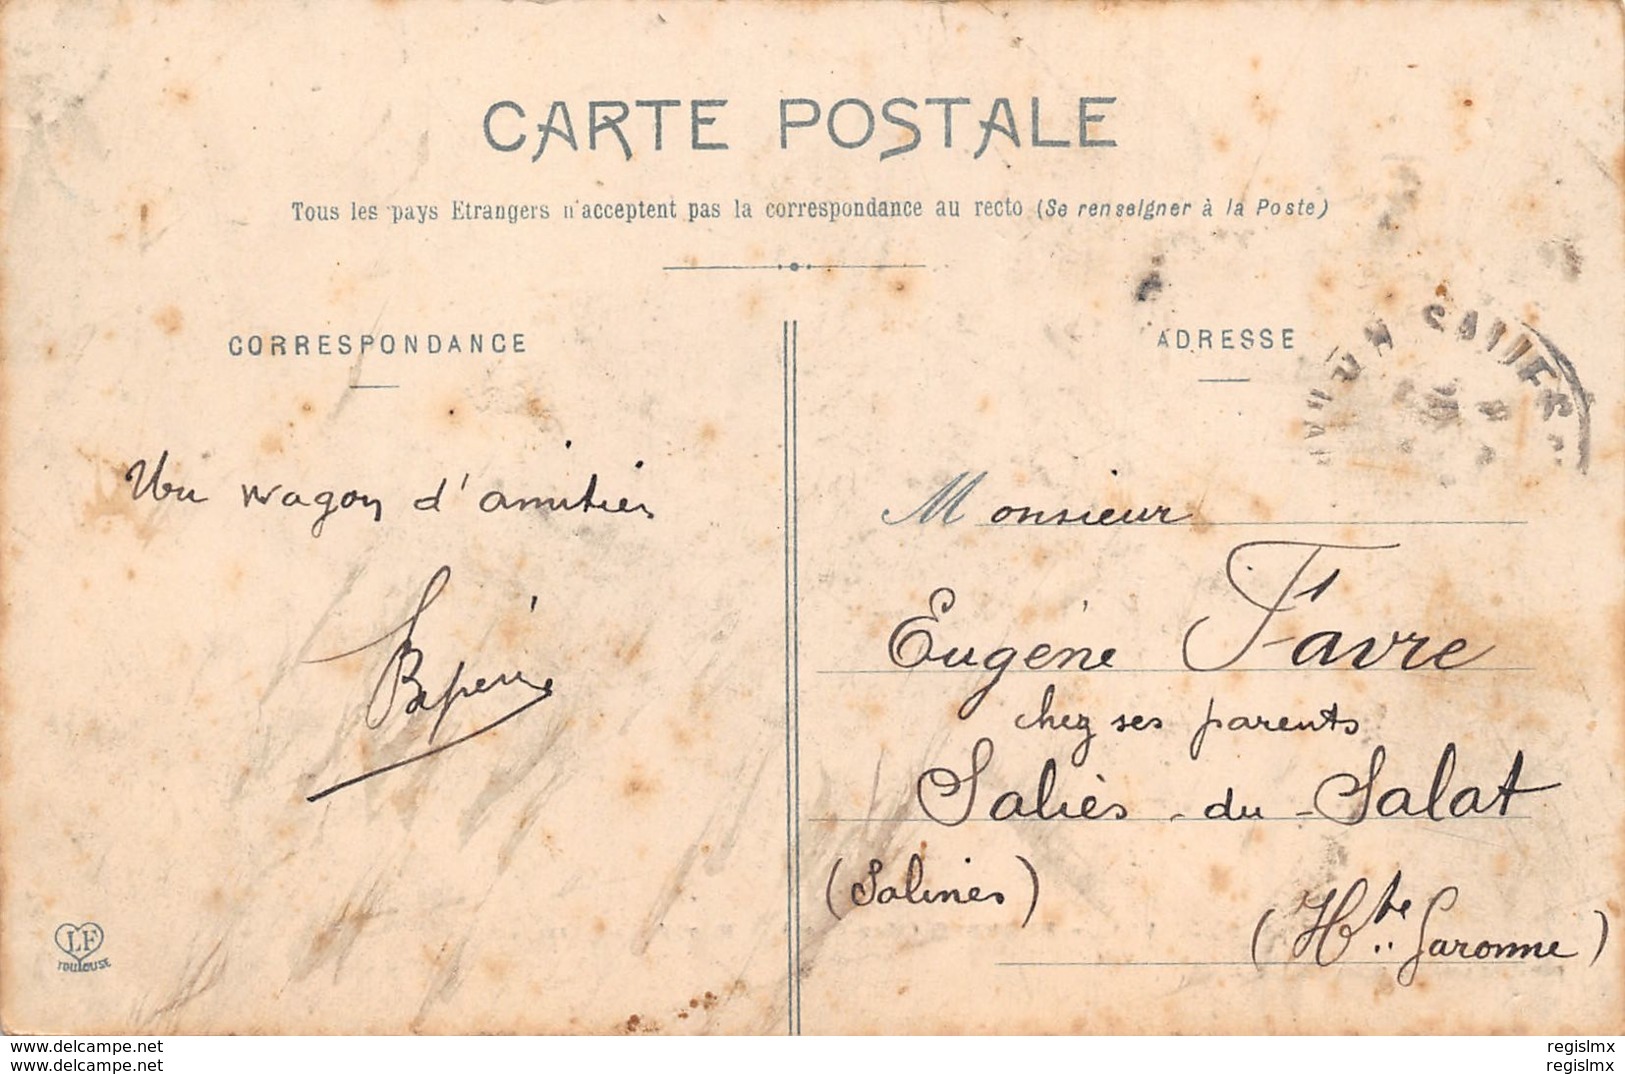 CARTE POSTALE
Tous les pays Etrangers n'acceptent pas la correspondance au recto (Se renseigner à la Poste)
CORRESPONDANCE
ADRESSE
Un wagon d'amitiés
Monsieur
Eugène Favre
chez ses parents
Saliès-du-Salat
(Salines)
(Hte Garonne)
LF
TOULOUSE
www.delcampe.net
regislmx
www.delcampe.net
regislmx